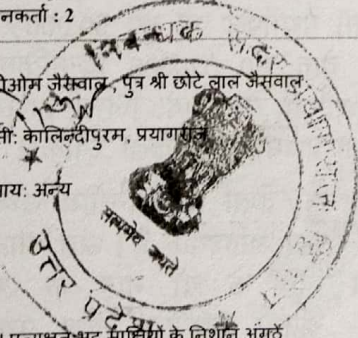 नकर्ता : 2
ओम जैसवाल , पुत्र श्री छोटे लाल जैसवाल
सी: कालिन्दीपुरम, प्रयागराज
ाय: अन्य
सदर प्रयागराज
सत्यमेव जयते
उत्तर प्रदेश
के निशान अंगूठे